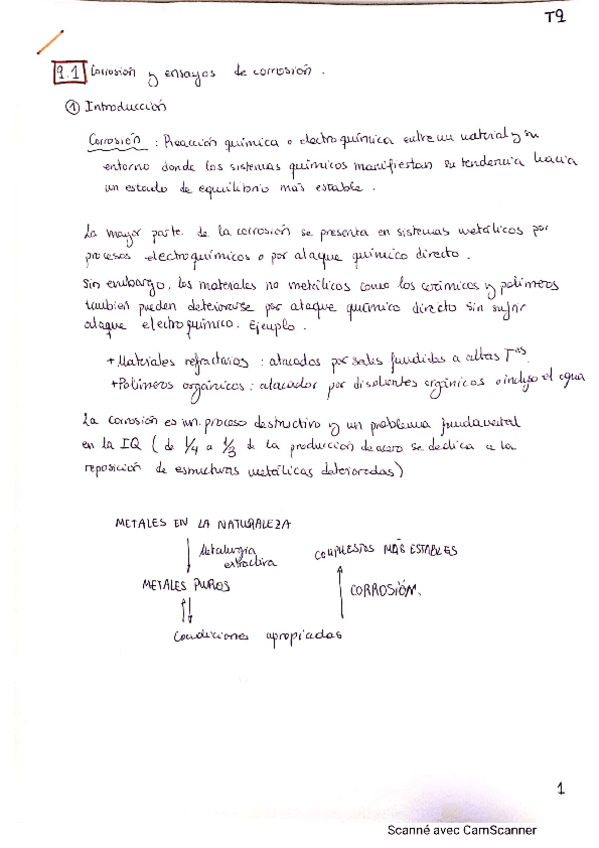 T9
9.1 Corrosión y ensayos de corrosión.
① Introducción
Corrosión : Reacción química o electroquímica entre un material y su
entorno donde los sistemas químicos manifiestan su tendencia hacia
un estado de equilibrio más estable.
La mayor parte de la corrosión se presenta en sistemas metálicos por
procesos electroquímicos o por ataque químico directo.
Sin embargo, los materiales no metálicos como los cerámicos y polímeros
tambien pueden deteriorarse por ataque químico directo sin sufrir
ataque electroquímico. Ejemplo.
+Materiales refractarios : atacados por sales fundidas a altas Tas.
+Polímeros orgánicos : atacados por disolventes orgánicos o incluso el agua
La corrosión es un proceso destructivo y un problema fundamental
en la IQ ( de 1/4 a 1/3 de la producción de acero se dedica a la
reposición de estructuras metálicas deterioradas)
METALES EN LA NATURALEZA
Metalurgia
extractiva
COMPUESTOS MÁS ESTABLES
METALES PUROS
CORROSIÓN.
Condiciones apropiadas
1
Scanné avec CamScanner